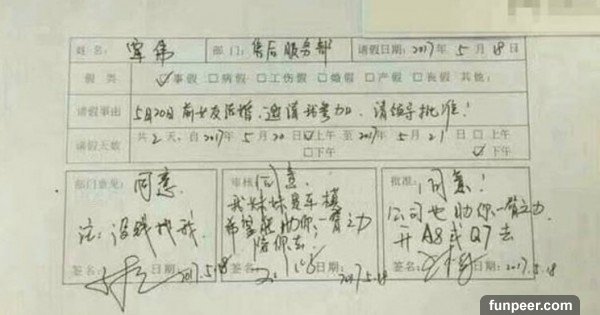 姓名: 军伟 部门: 售后服务部 请假日期: 2017年 5月 18日
假类 ☑事假 □病假 □工伤假 □婚假 □产假 □丧假 其他:
请假事由 5月20日前女友结婚,邀请我参加,请领导批准!
请假天数 共2天,自2017年5月20日☑上午 至2017年5月21日□上午
□下午 ☑下午
部门意见: 同意
注:没钱找我
签名: 日期: 2017.5.18
审核: 同意
我妹妹是车模
希望能助你一臂之力
陪你去!
签名: 日期: 2017.5.18
批准: 同意!
公司也助你一臂之力
开A8或Q7去
签名: 日期: 2017.5.18
funpeer.com